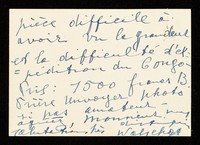 pièce difficile à
avoir vu la grandeur
et la difficulté d'ex-
pédition du Congo-
Prix: 7500 francs B.
Prière envoyer photo.
si pas amateur.
monsieur, mes
distingués